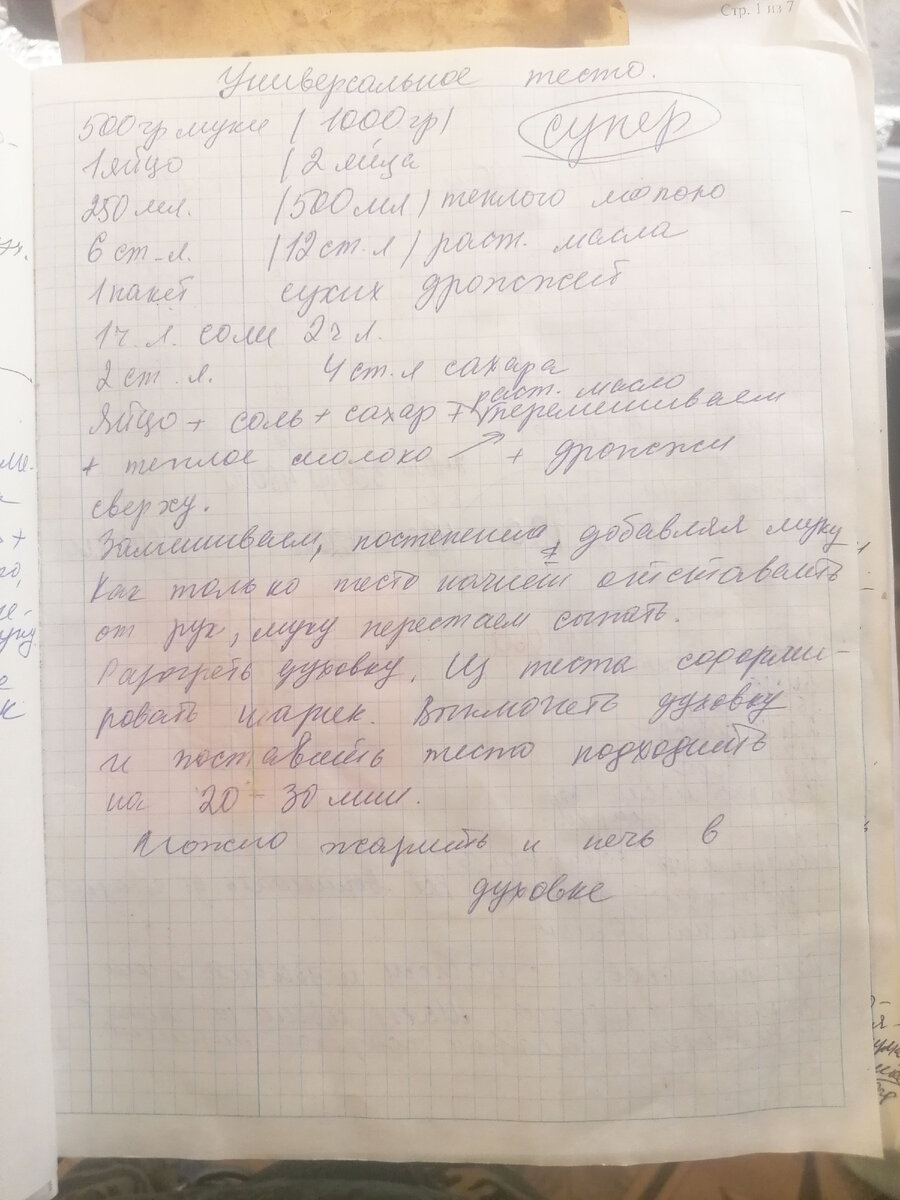 Стр. 1 из 7
Универсальное тесто.
500гр муки (1000гр)
супер
1яйцо (2 яйца
250 мл. (500мл) теплого молоко
6 ст-л. (12ст.л) раст. масла
1пакет сухих дрожжей
1ч.л. соли 2ч л.
2 ст.л. 4ст.л сахара
раст. масло
Яйцо + соль + сахар + перемешиваем
+ теплое молоко → + дрожжи
сверху.
Замешиваем, постепенно, добавляя муку
Как только тесто начнет отставать
от рук, муку перестаем сыпать.
Разогреть духовку. Из теста сформи-
ровать шарик. Выключить духовку
и поставить тесто подходить
на 20-30мин.
Можно жарить и печь в
духовке